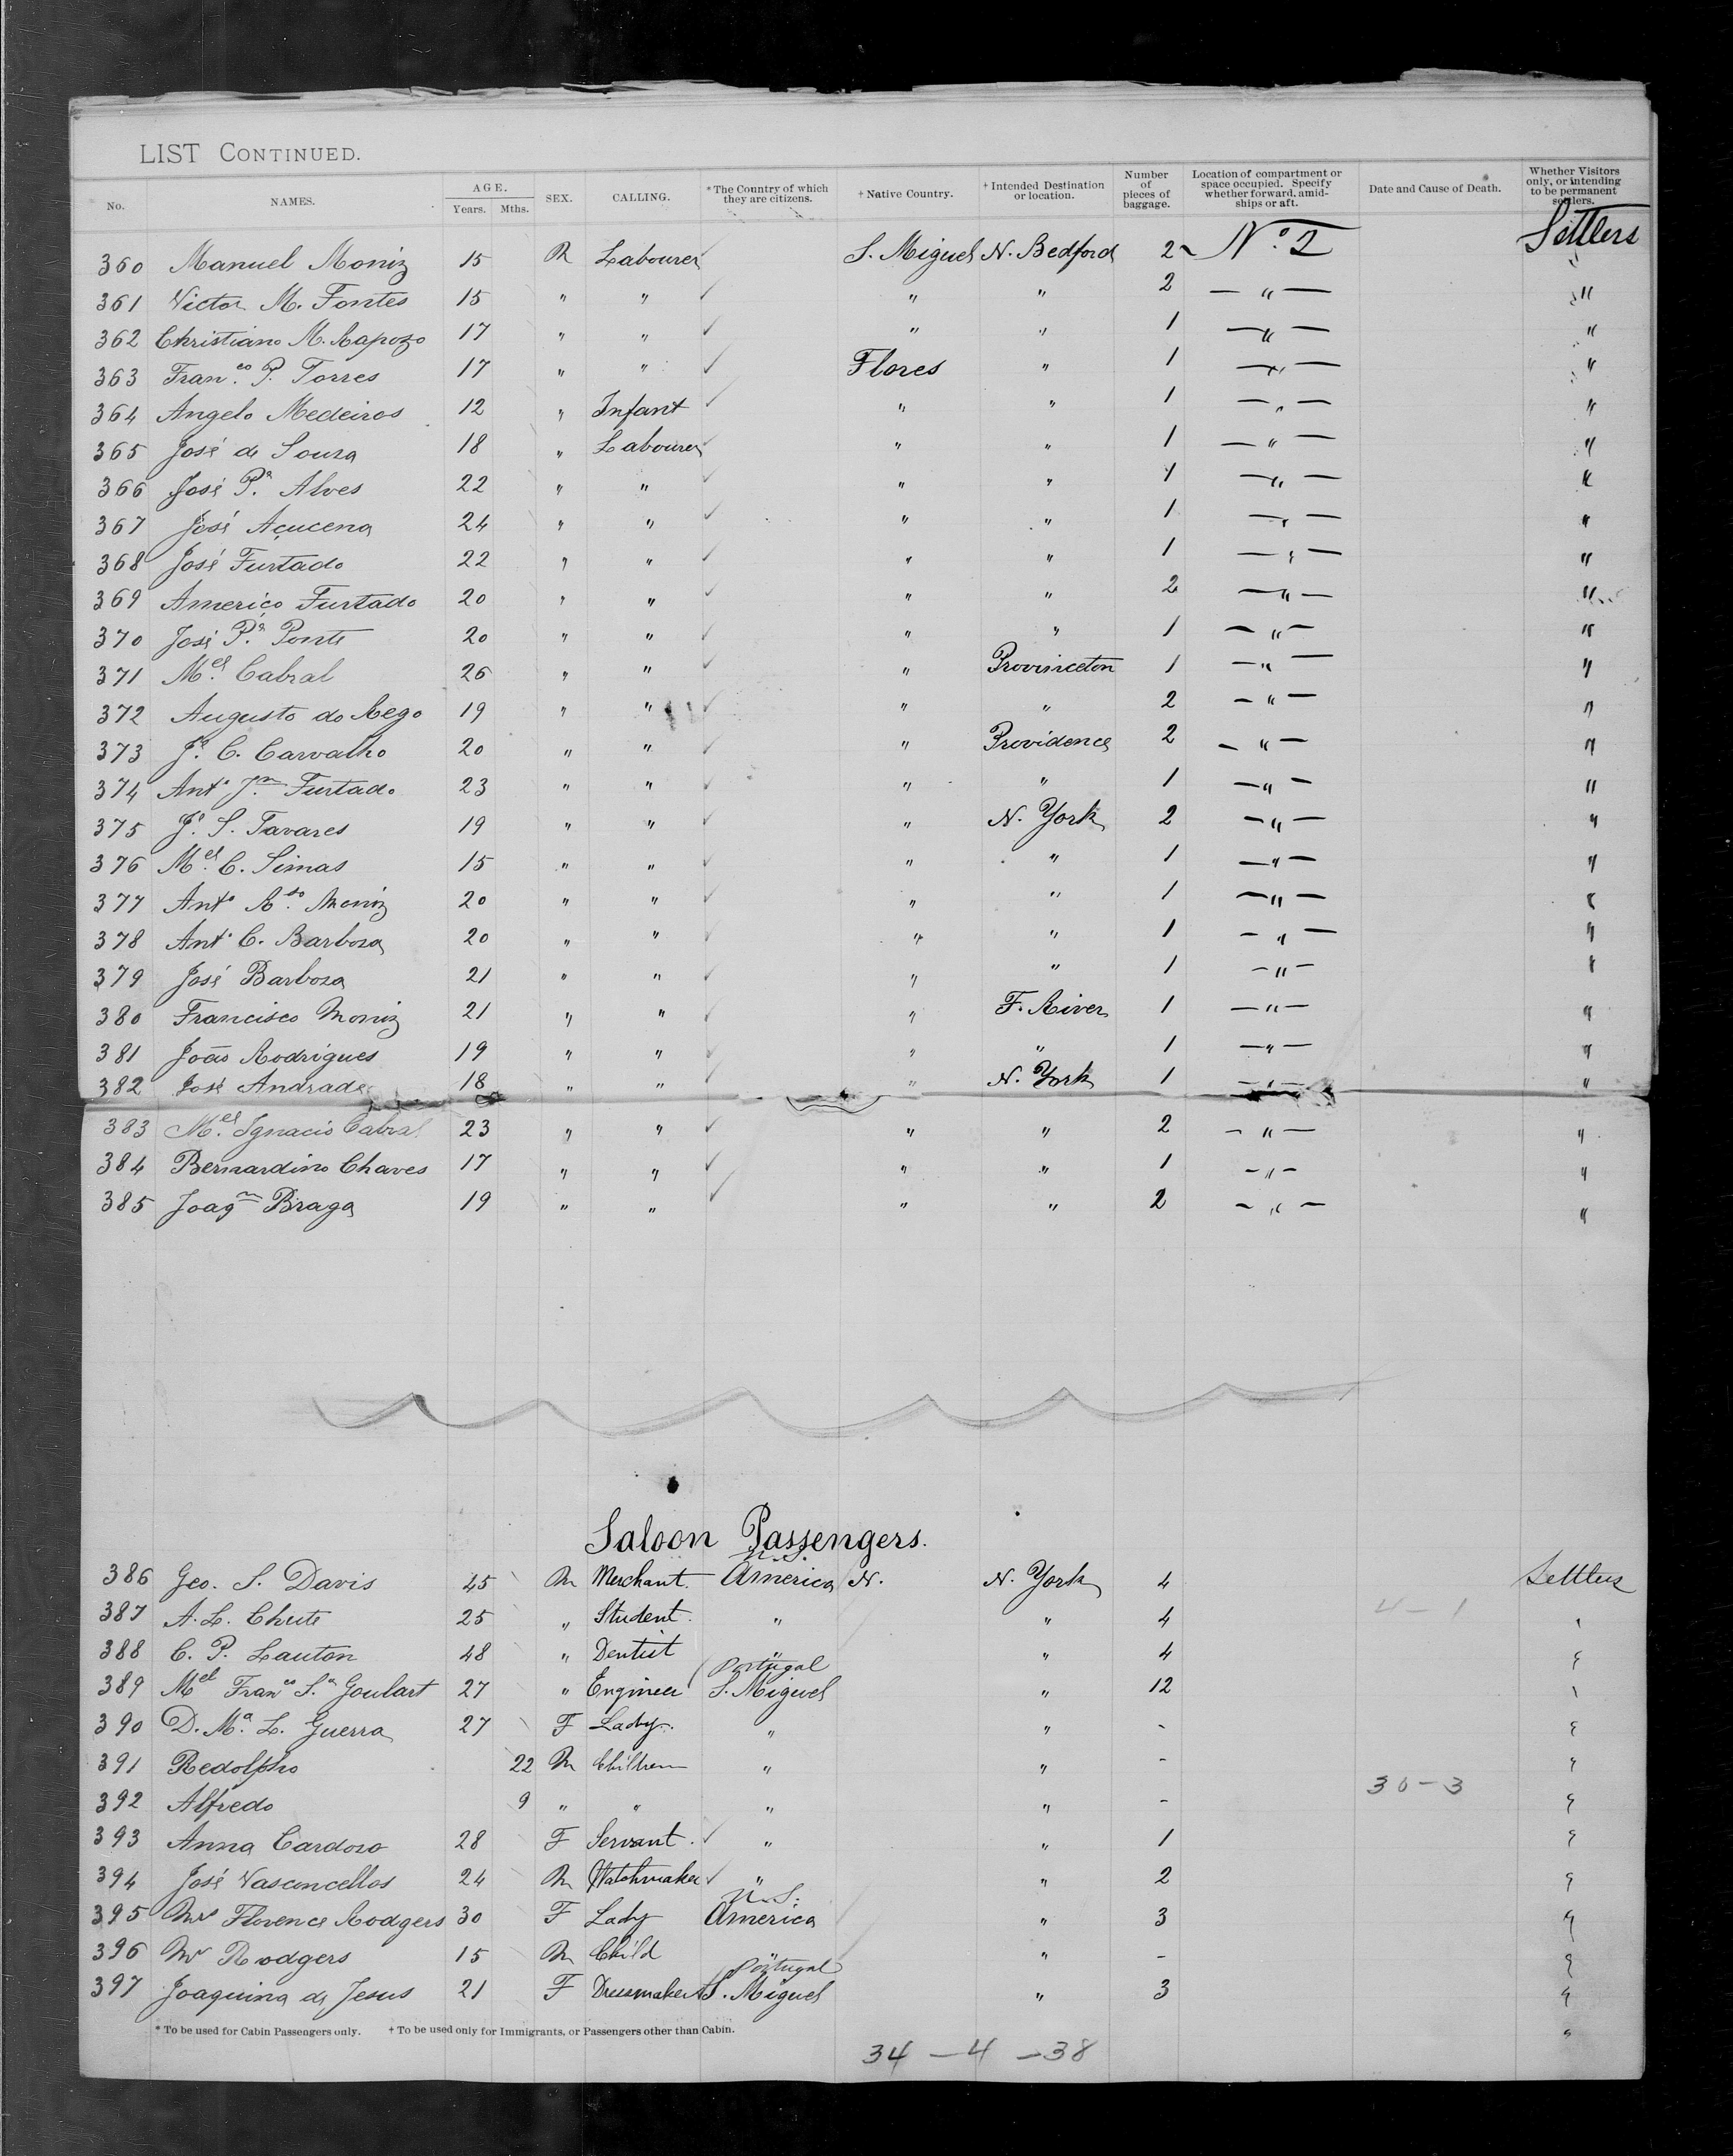 LIST CONTINUED.
No. NAMES. AGE. Years. Mths. SEX. CALLING. *The Country of which they are citizens. †Native Country. †Intended Destination or location. Number of pieces of baggage. Location of compartment or space occupied. Specify whether forward, amidships or aft. Date and Cause of Death. Whether Visitors only, or intending to be permanent settlers.
360 Manuel Moniz 15 M Labourer ✓ S. Miguel N. Bedford 2 Nº 2 Settlers
361 Victor M. Fontes 15 " " ✓ " " 2 — " — "
362 Christiano M. Rapozo 17 " " ✓ " " 1 — " — "
363 Fran.co P. Torres 17 " " ✓ Flores " 1 — " — "
364 Angelo Medeiros 12 " Infant ✓ " " 1 — " — "
365 José de Souza 18 " Labourer ✓ " " 1 — " — "
366 José P.a Alves 22 " " ✓ " " 1 — " — "
367 José Açucena 24 " " ✓ " " 1 — " — "
368 José Furtado 22 " " ✓ " " 1 — " — "
369 Americo Furtado 20 " " ✓ " " 2 — " — "
370 José P.a Ponte 20 " " ✓ " " 1 — " — "
371 M.el Cabral 26 " " ✓ " Provinceton 1 — " — "
372 Augusto do Rego 19 " " ✓ " " 2 — " — "
373 J.e C. Carvalho 20 " " ✓ " Providence 2 — " — "
374 Ant.o J.m Furtado 23 " " ✓ " " 1 — " — "
375 J.e S. Tavares 19 " " ✓ " N. York 2 — " — "
376 M.el C. Simas 15 " " ✓ " " 1 — " — "
377 Ant.o A.to Moniz 20 " " ✓ " " 1 — " — "
378 Ant.o C. Barboza 20 " " ✓ " " 1 — " — "
379 José Barboza 21 " " ✓ " " 1 — " — "
380 Francisco Moniz 21 " " ✓ " F. River 1 — " — "
381 João Rodrigues 19 " " ✓ " " 1 — " — "
382 José Andrade 18 " " ✓ " N. York 1 — " — "
383 M.el Ignacio Cabral 23 " " ✓ " " 2 — " — "
384 Bernardino Chaves 17 " " ✓ " " 1 — " — "
385 Joaqm Braga 19 " " ✓ " " 2 — " — "
Saloon Passengers.
386 Geo. S. Davis 45 M Merchant U.S. America N. N. York 4 Settlers
387 A. L. Chute 25 " Student " " 4 4 – 1 "
388 C. P. Lauton 48 " Dentist " " 4 "
389 Mel Franco S.a Goulart 27 " Engineer Portugal S. Miguel " 12 "
390 D. M.a L. Guerra 27 F Lady " " - "
391 Redolpho 22 M Children " " - "
392 Alfredo 9 " " " " - 30 – 3 "
393 Anna Cardoso 28 F Servant ✓ " " 1 "
394 José Vasconcellos 24 M Watchmaker ✓ " " 2 "
395 Mrs Florence Rodgers 30 F Lady U.S. America " 3 "
396 Mr Rodgers 15 M Child " - "
397 Joaquina de Jesus 21 F Dressmaker Portugal S. Miguel " 3 "
* To be used for Cabin Passengers only. † To be used only for Immigrants, or Passengers other than Cabin. "
34 – 4 – 38